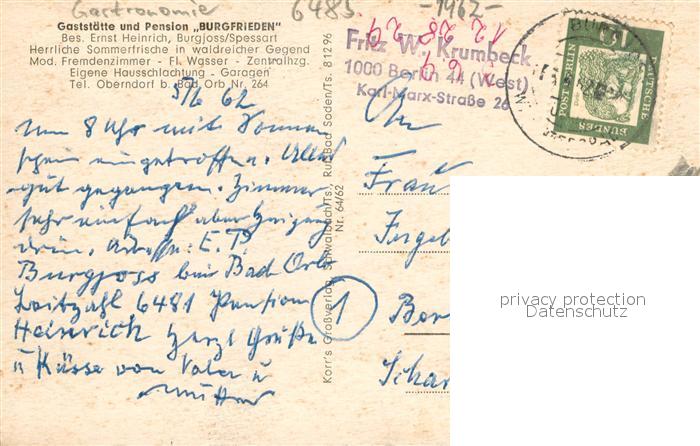 Gastronomie
6483
-1962-
Gaststätte und Pension „BURGFRIEDEN"
Bes. Ernst Heinrich, Burgjoss/Spessart
Herrliche Sommerfrische in waldreicher Gegend
Mod. Fremdenzimmer - Fl. Wasser - Zentralhzg.
Eigene Hausschlachtung - Garagen
Tel. Oberndorf b. Bad Orb Nr. 264
Fritz W. Krumbeck
1000 Berlin 44 (West)
Karl-Marx-Straße 26
DEUTSCHE
BUNDES
POST BERLIN
15
5/6 62
Um 8 Uhr mit Sonnen
schein eingetroffen. Alles
gut gegangen. Zimmer
sehr einfach aber Heizung
drin. Adresse: E. T.
Burgjoss bei Bad Orb
Leitzahl 6481 Pension
Heinrich Herzl Grüße
u Küsse von Vater u
Mutter
Korr's Großverlag, Schwalbach/Ts., Ruf: Bad Soden/Ts. 81296
Nr. 64/62
An
Frau
Ingeb
1 Ber
Schar
privacy protection
Datenschutz